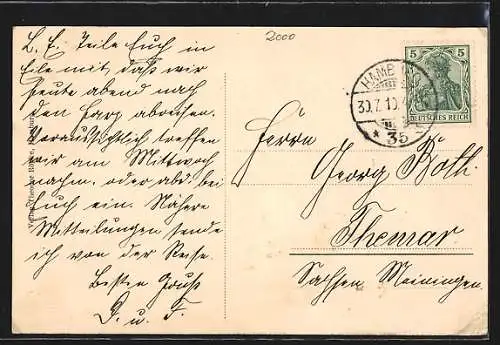 2000
L. E. Teile Euch in
Eile mit, daß wir
heute abend nach
den Harz abreisen.
Voraussichtlich treffen
wir am Mittwoch
nachm. oder abd. bei
Euch ein. Nähere
Mitteilungen sende
ich von der Reise.
Besten Gruß
G. u. F.
5 5
DEUTSCHES REICH
HAMB
30.7.10.
* 35
Herrn
Georg Böth.
Themar
Sachsen Meiningen.